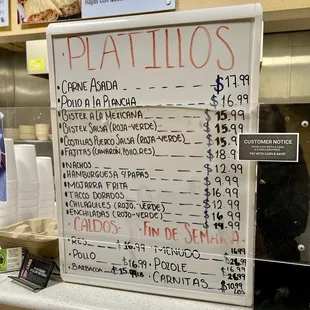 PLATILLOS
CARNE ASADA $17.99
POLLO A LA PLANCHA $16.99
BISTEK A LA MEXICANA $15.99
BISTEK SALSA (ROJA-VERDE) $15.99
COSTILLAS PUERCO SALSA (ROJA-VERDE) $15.99
FAJITAS (CAMARÓN, POLLO, RES) $18.99
NACHOS $12.99
HAMBURGUESA Y PAPAS $9.99
MOJARRA FRITA $16.99
TACOS DORADOS $12.99
CHILAQUILES (ROJO, VERDE) 16.99
ENCHILADAS (ROJO-VERDE) 14.99
CALDOS:
RES 16.99
POLLO $16.99
BARBACOA 15.99 LB
FIN DE SEMANA
MENUDO 16.99
POZOLE
CARNITAS $10.99
CUSTOMER NOTICE